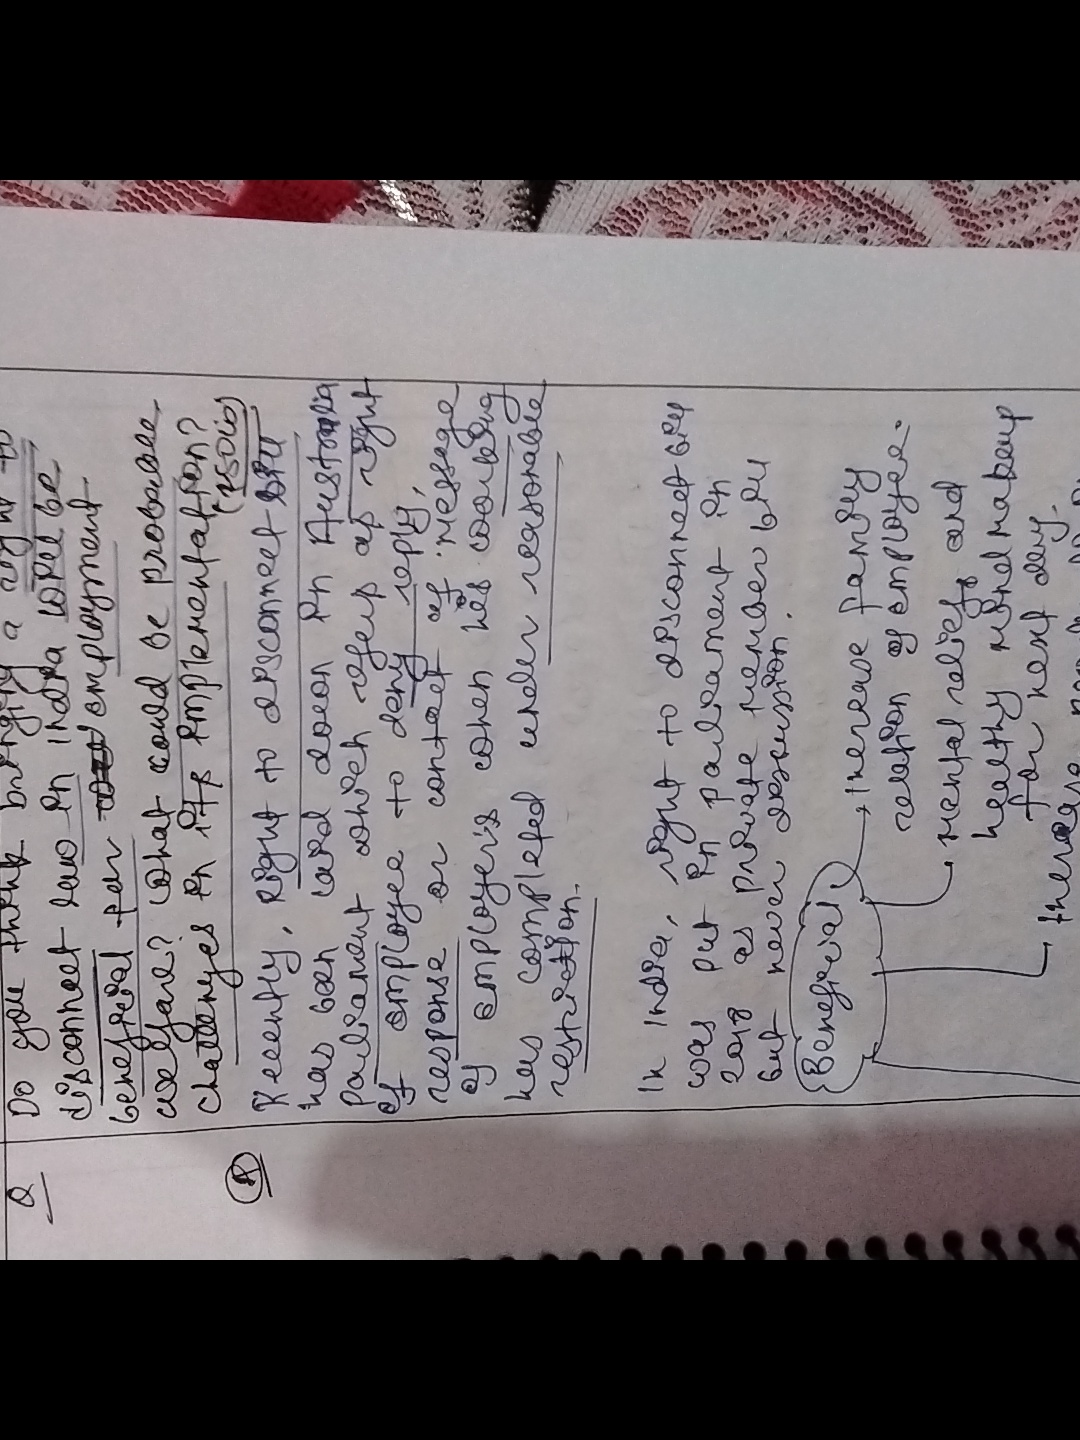 Q Do you think bringing a right to
disconnect law in India will be
beneficial for employment
welfare? What could be probable
challenges in its implementation?
(150w)
(A) Recently, Right to disconnect bill
has been laid down in Australia
Parliament which refers as right
of employee to deny reply,
response or contact of message
of employers when his working
has completed under reasonable
restriction.
In India, right to disconnect bill
was put in parliament in
2018 as private member bill
but never discussion.
Beneficial
→ increase family
relation of employee.
→ mental relief and
healthy mind makeup
for next day.
→ increase